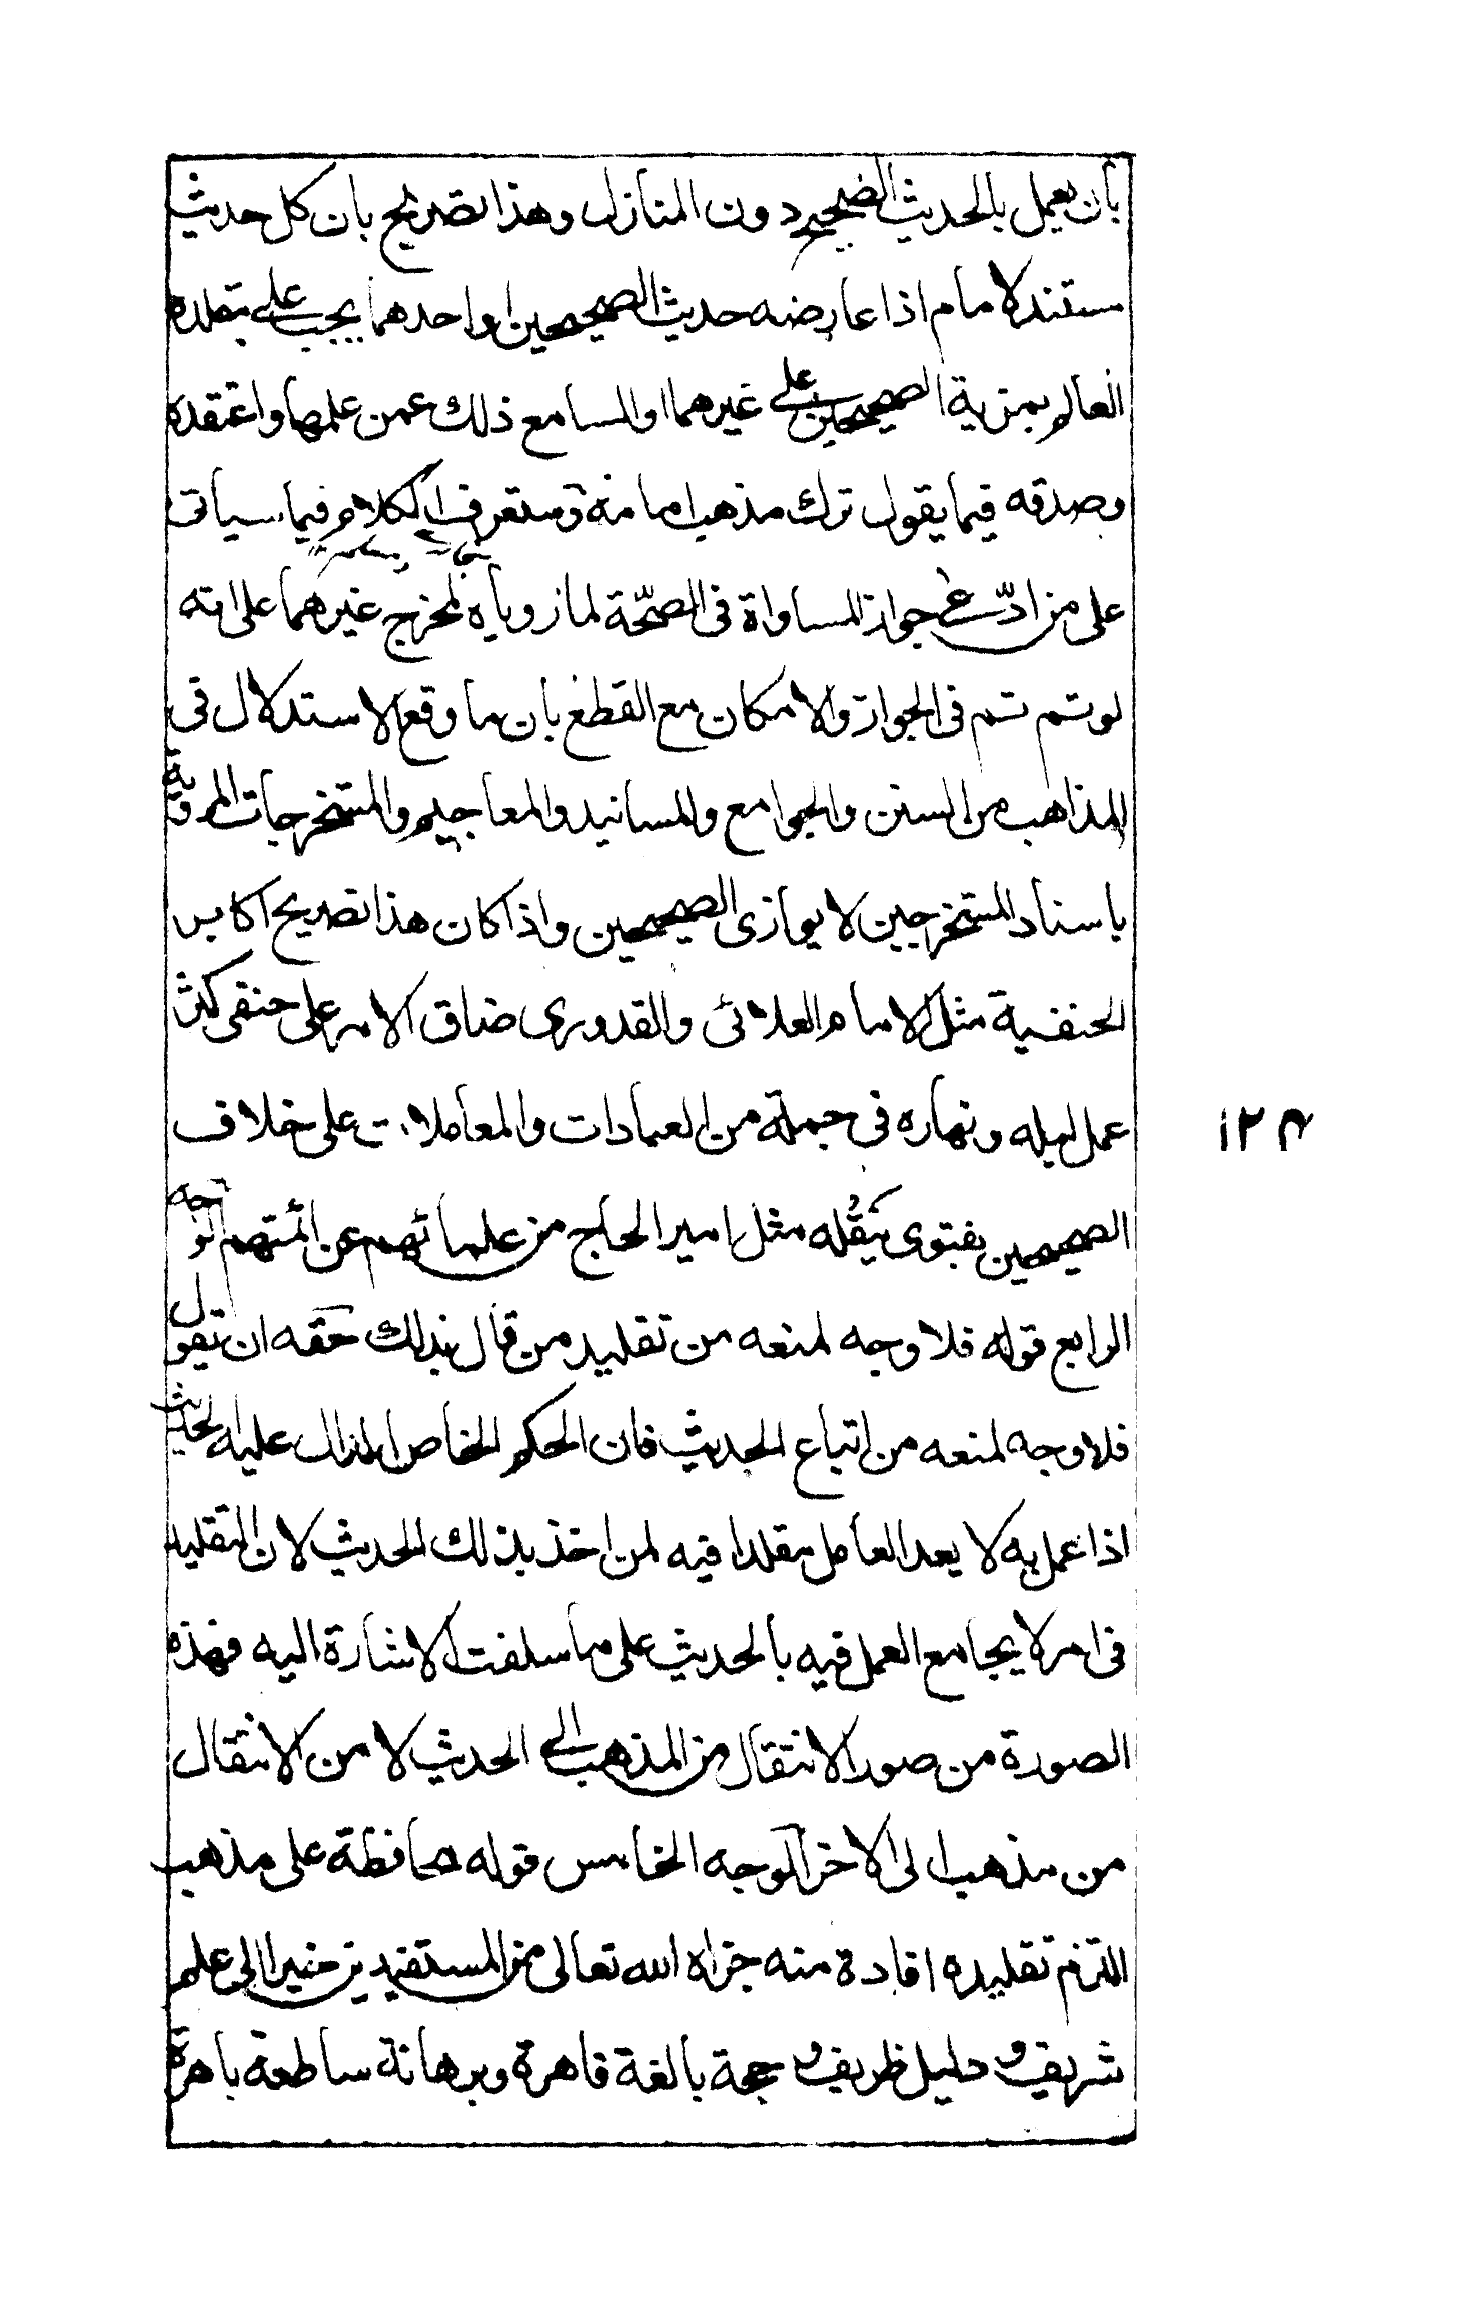 بأن يعمل بالحديث الصحيح دون المنازل وهذا تصريح بان كل حديث
مستند لامام اذا عارضه حديث الصحيحين او احدهما يجب على مقلده
العالم بمزية الصحيحين على غيرهما او السامع ذلك عمن علمها واعتقده
وصدقه فيما يقول ترك مذهب امامه وستعرف الكلام فيما سياتى
على من ادّعى جواز المساواة فى الصحّة لما روياه لمخرج غيرهما على انه
لو تم تم فى الجواز والامكان مع القطع بان ما وقع الاستدلال فى
المذاهب من السنن والجوامع والمسانيد والمعاجيم والمستخرجات المروية
باسناد المستخرجين لا يوازى الصحيحين واذا كان هذا تصريح اكابر
الحنفية مثل الامام العلائى والقدورى ضاق الامر على حنفى كثر
عمل ليله ونهاره فى جملة من العبادات والمعاملات على خلاف
١٢٨
الصحيحين بفتوى ينقله مثل امير الحاج من علمائهم عن ائمتهم الوجه
الرابع قوله فلا وجه لمنعه من تقليد من قال بذلك حقه ان يقول
فلا وجه لمنعه من اتباع الحديث فان الحكم الخاص الدال عليه الحديث
اذا عمل به لا يعد العامل مقلدا فيه لمن اخذ بذلك الحديث لان التقليد
فى امر لا يجامع العمل فيه بالحديث على ما سلفت الاشارة اليه فهذه
الصورة من صور الانتقال من المذهب الى الحديث لا من الانتقال
من مذهب الى الاخر الوجه الخامس قوله محافظة على مذهب
التزم تقليده افادة منه جزاه الله تعالى من المستفيدين خيرا الى علم
شريف و دليل ظريف و حجة بالغة قاهرة وبرهانة ساطعة باهرة